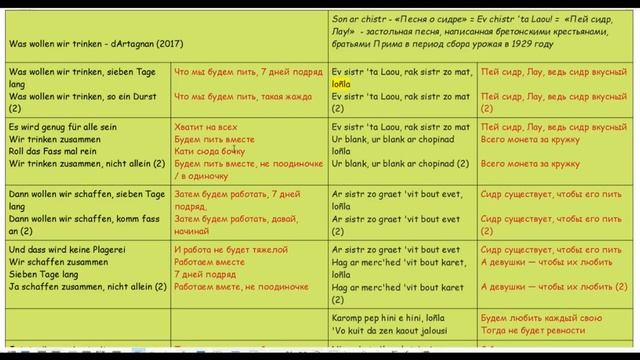 Was wollen wir trinken – dArtagnan (2017)
Son ar chistr - «Песня о сидре» = Ev chistr 'ta Laou! = «Пей сидр,
Лау!» - застольная песня, написанная бретонскими крестьянами,
братьями Прима в период сбора урожая в 1929 году
Was wollen wir trinken, sieben Tage
lang
Was wollen wir trinken, so ein Durst
(2)
Что мы будем пить, 7 дней подряд
Что мы будем пить, такая жажда
Ev sistr 'ta Laou, rak sistr zo mat,
loñla
Ev sistr 'ta Laou, rak sistr zo mat
(2)
Пей сидр, Лау, ведь сидр вкусный
Пей сидр, Лау, ведь сидр вкусный
(2)
Es wird genug für alle sein
Wir trinken zusammen
Roll das Fass mal rein
Wir trinken zusammen, nicht allein (2)
Хватит на всех
Будем пить вместе
Кати сюда бочку
Будем пить вместе, не поодиночке
/ в одиночку
Ev sistr 'ta Laou, rak sistr zo mat
Ur blank, ur blank ar chopinad
loñla
Ur blank, ur blank ar chopinad (2)
Пей сидр, Лау, ведь сидр вкусный
Всего монета за кружку
Всего монета за кружку
Dann wollen wir schaffen, sieben Tage
lang
Dann wollen wir schaffen, komm fass
an (2)
Затем будем работать, 7 дней
подряд,
Затем будем работать, давай,
начинай
Ar sistr zo graet 'vit bout evet,
loñla
Ar sistr zo graet 'vit bout evet
(2)
Сидр существует, чтобы его пить
Сидр существует, чтобы его пить
(2)
Und dass wird keine Plagerei
Wir schaffen zusammen
Sieben Tage lang
Ja schaffen zusammen, nicht allein (2)
И работа не будет тяжелой
Работаем вместе
7 дней подряд
Работаем вмете, не поодиночке
Ar sistr zo graet 'vit bout evet
Hag ar merc'hed 'vit bout karet,
loñla
Hag ar merc'hed 'vit bout karet
(2)
Сидр существует, чтобы его пить
А девушки — чтобы их любить
А девушки — чтобы их любить (2)
Karomp pep hini e hini, loñla
'Vo kuit da zen kaout jalousi
Будем любить каждый свою
Тогда не будет ревности